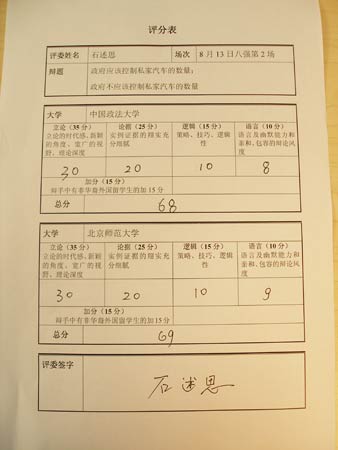 评分表
评委姓名 石述思 场次 8月13日八强第2场
辩题 政府应该控制私家汽车的数量;
政府不应该控制私家汽车的数量
大学 中国政法大学
立论（35分） 论据（25分） 逻辑（15分） 语言（10分）
立论的时代感,新颖 实例证据的翔实充 策略、技巧、逻辑 语言及幽默能力和
的角度、宽广的视 分细腻 性 亲和、包容的辩论风
野、理论深度 度
30 20 10 8
加分（15分）
辩手中有非华裔外国留学生的加15分
总分 68
大学 北京师范大学
立论（35分） 论据（25分） 逻辑（15分） 语言（10分）
立论的时代感,新颖 实例证据的翔实充 策略、技巧、逻辑 语言及幽默能力和
的角度、宽广的视 分细腻 性 亲和、包容的辩论风
野、理论深度 度
30 20 10 9
加分（15分）
辩手中有非华裔外国留学生的加15分
总分 69
评委签字
石述思